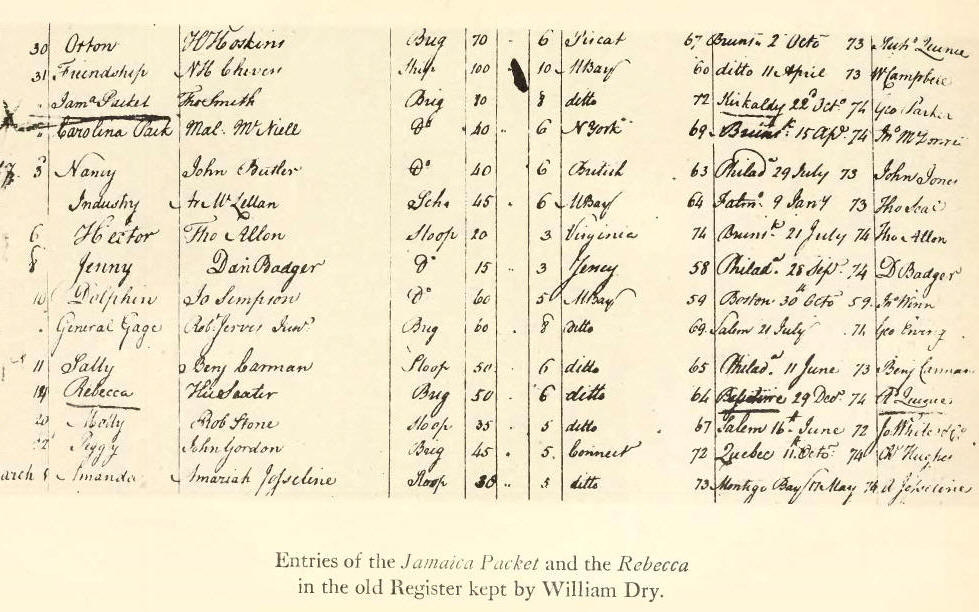 30 Orton H Hoskins Brig 70 . 6 Piscat 67 Bruns. 2d Octo 73
31 Friendship NH Chevers Ship 100 . 10 MBay 60 ditto 11 April 73 Wm Campbell
Jama Packet Tho Smith Brig 80 8 ditto 72 Kirkaldy 22d Octo 74 Geo Parker
Carolina Pack Mal. McNiell Do 40 .. 6 N York 69 Brunsk 15 Apl. 74
3 Nancy John Butler Do 40 6 British 63 Philada 29 July 73 John Jones
Industry McLellan Scho 45 . 6 MBay 64 9 Jany 73
6 Hector Tho Allon Sloop 20 3 Virginia 74 Brunsk 21 July 74 Tho Allon
8 Jenny Danl Badger Do 15 .. 3 Jersey 58 Philada 28 Sepr. 74 D Badger
10 Dolphin Jo Simpson Do 60 5 MBay 59 Boston 30th Octo 59. Jno Winn
General Gage Robt Jervis Junr Brig 60 . 8 ditto 69 Salem 21 July 71 Geo Ewing
11 Sally Benj Carman Sloop 50 . 6 ditto 65 Philada 11 June 73 Benj Carman
14 Rebecca Brig 50 . 6 ditto 64 29 Decr. 74
20 Molly Rob Stone Sloop 35 . 5 ditto 67 Salem 16th June 72 Jo White & Co
22 Peggy John Gordon Brig 45 . 5. Connect 72 Quebec 11th Octo 74 Hughes
arch Amanda Amariah Josseline Sloop 30 .. 5 ditto 73 Montego Bay 17 May 74 A Josseline
Entries of the Jamaica Packet and the Rebecca
in the old Register kept by William Dry.